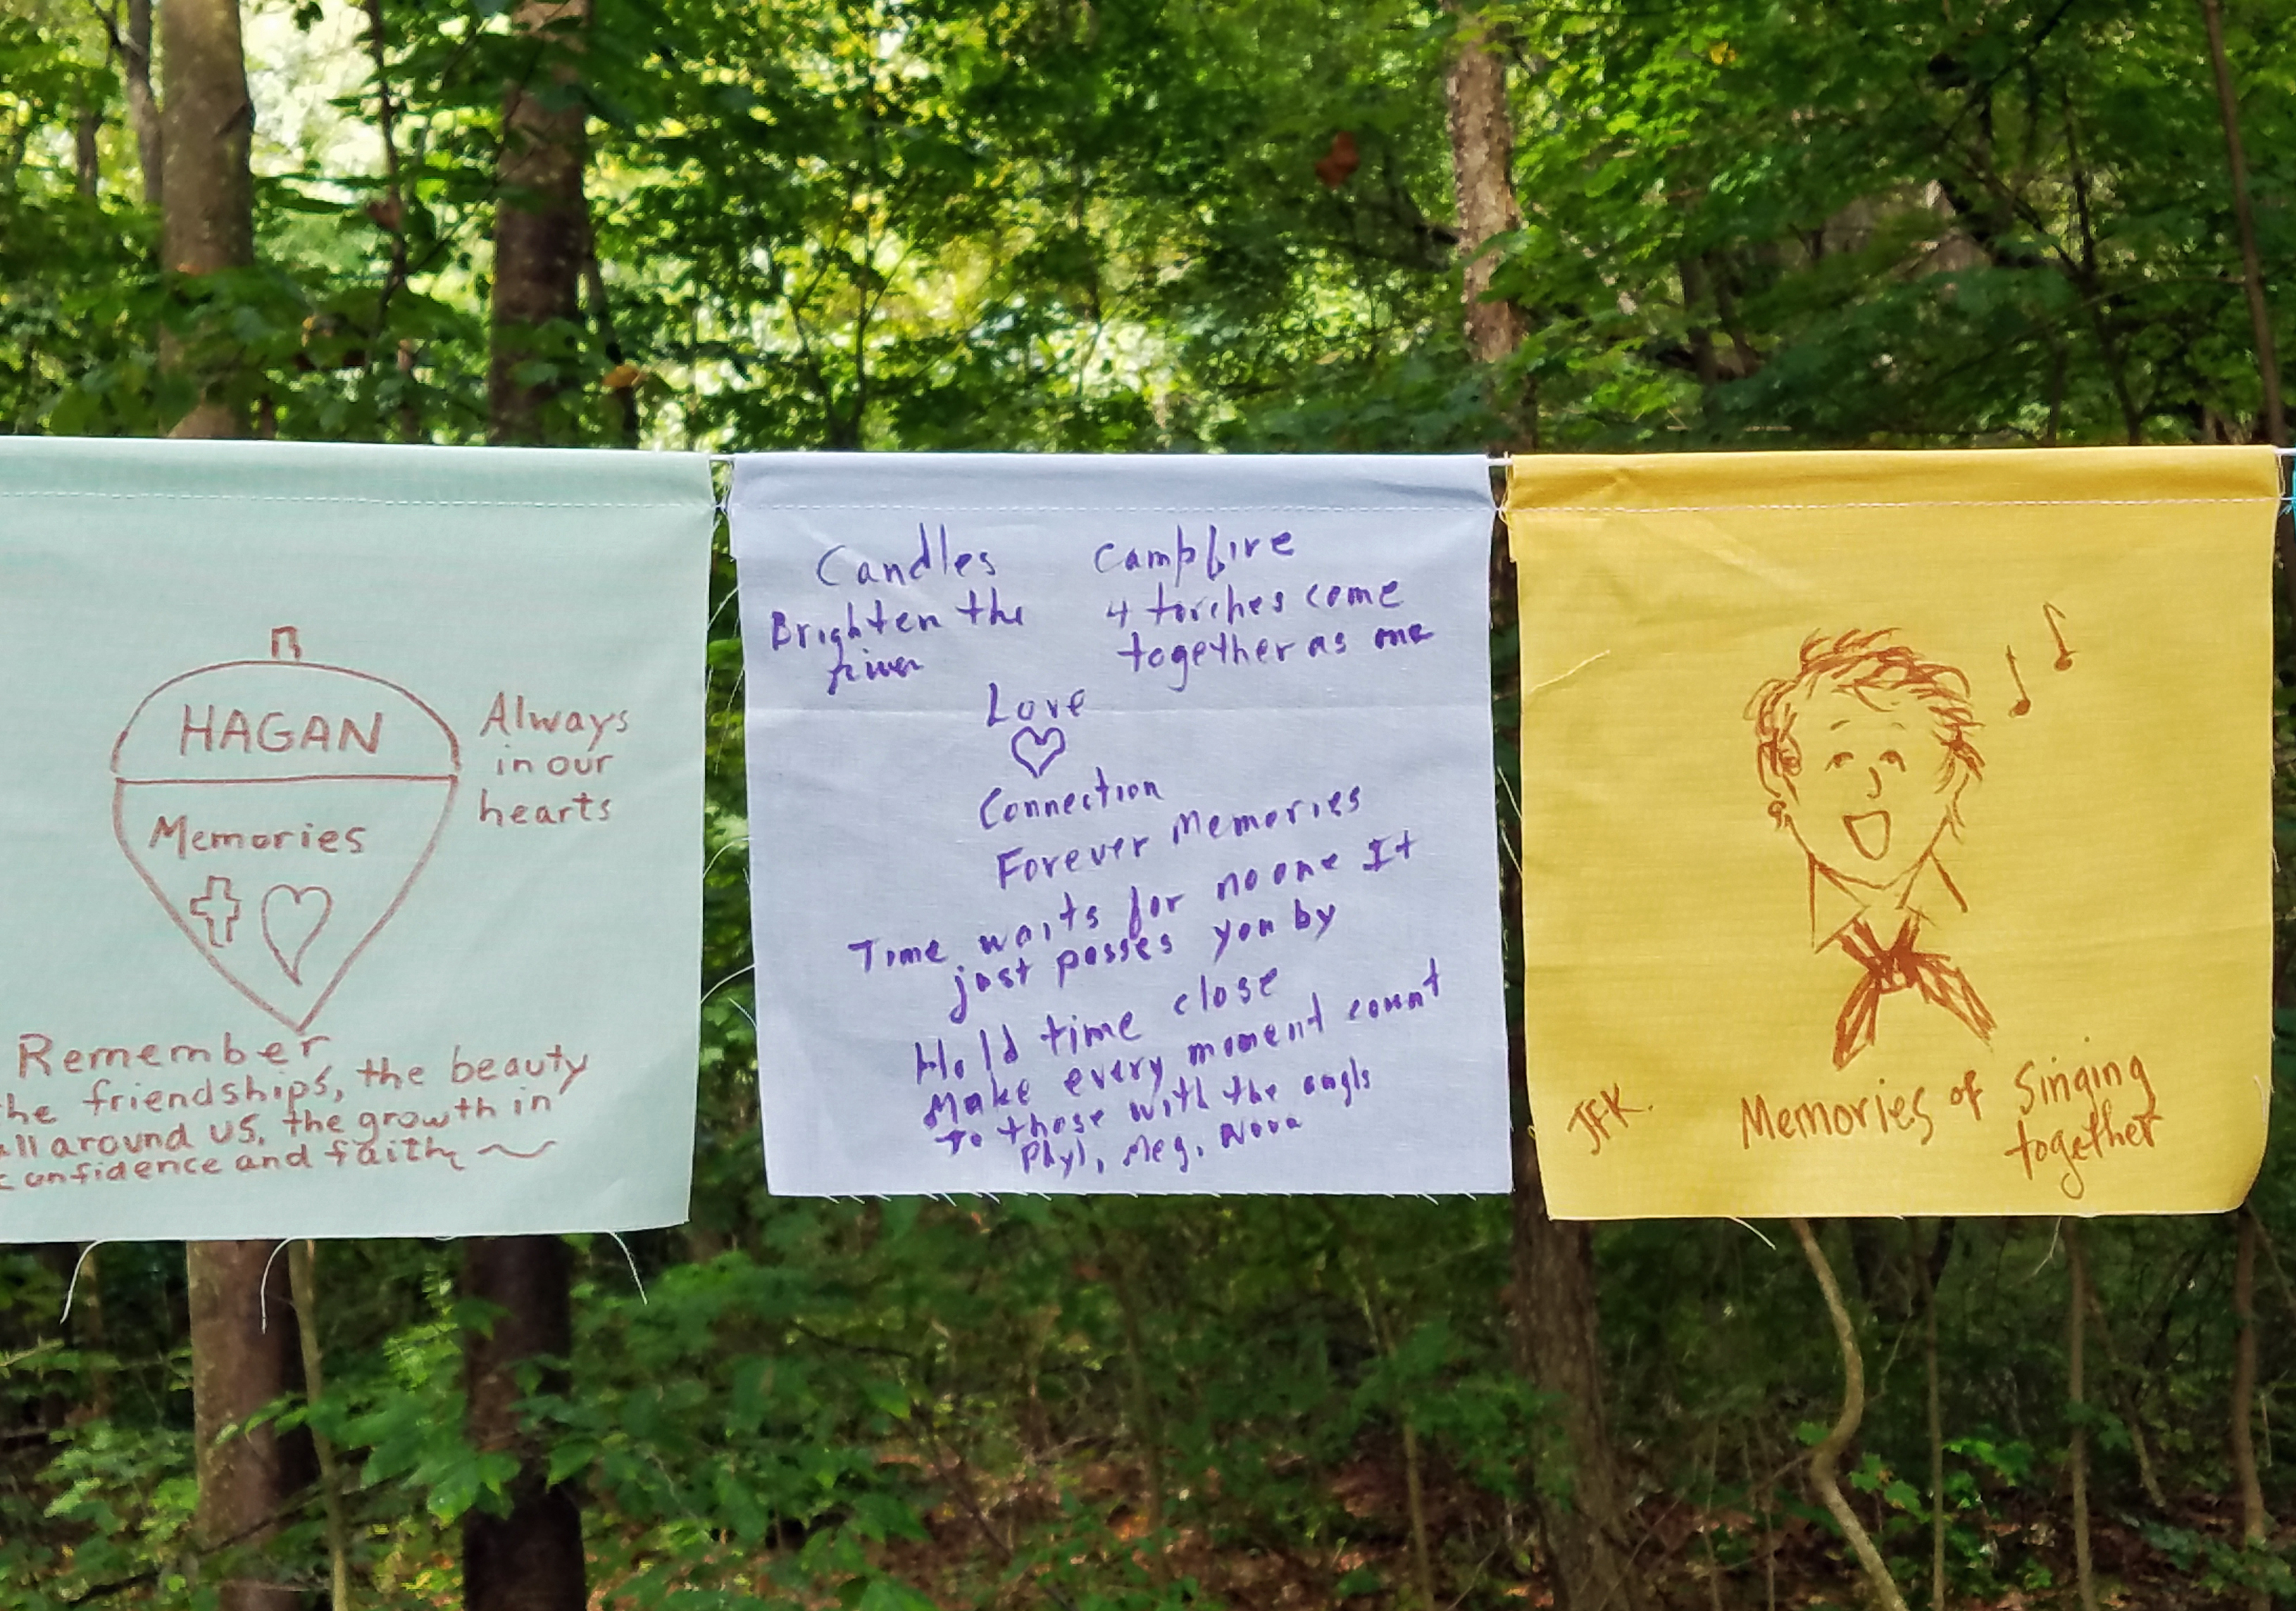 HAGAN
Memories
Always
in our
hearts
Remember
he friendships, the beauty
all around us, the growth in
confidence and faith
Candles
Brighten the
river
Campfire
4 torches come
together as one
Love
Connection
Forever Memories
Time waits for no one It
just passes you by
Hold time close
Make every moment count
To those with the angls
Phyl, Meg, Nova
JFK.
Memories of Singing
together